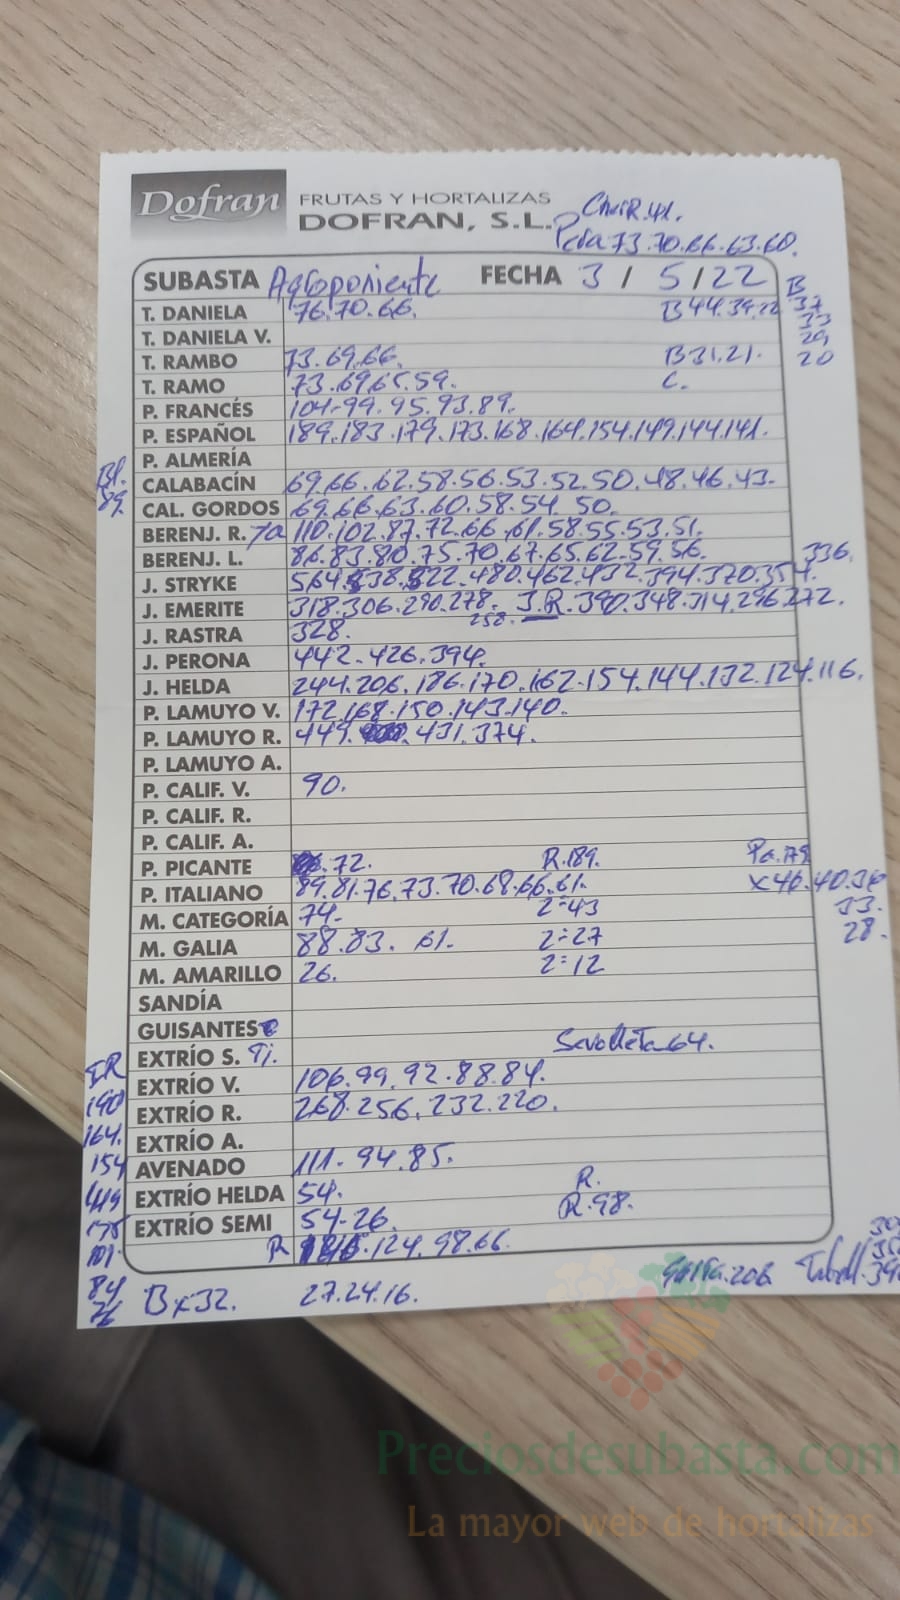 Dofran FRUTAS Y HORTALIZAS
DOFRAN, S.L.
Pera 73.70.66.63.60.
SUBASTA Agroponiente FECHA 3 / 5 / 22 B
T. DANIELA 76.70.66. B 44.39. 37
T. DANIELA V. 33
29
T. RAMBO 73.69.66. B 31.21. 20
T. RAMO 73.69.65.59. C.
P. FRANCÉS 104-99.95.93.89.
P. ESPAÑOL 189.183.179.173.168.164.154.149.144.141.
P. ALMERÍA
Bl.
89.
CALABACÍN 69.66.62.58.56.53.52.50.48.46.43.
CAL. GORDOS 69.66.63.60.58.54.50.
BERENJ. R. 110.102.87.72.66.61.58.55.53.51.
BERENJ. L. 86.83.80.75.70.67.65.62.59.56. 336.
J. STRYKE 564.538.522.480.462.432.394.370.354.
J. EMERITE 318.306.290.278. 250. J.R. 390.348.314.296.272.
J. RASTRA 328.
J. PERONA 442.426.394.
J. HELDA 244.206.186.170.162.154.144.132.124.116.
P. LAMUYO V. 172.168.150.143.140.
P. LAMUYO R. 449. 431.374.
P. LAMUYO A.
P. CALIF. V. 90.
P. CALIF. R.
P. CALIF. A.
P. PICANTE 72. R.189. Pa.179
P. ITALIANO 89.81.76.73.70.68.66.61. X 46.40.36
M. CATEGORÍA 74. 2=43 33.
M. GALIA 88.83. 61. 2=27 28.
M. AMARILLO 26. 2=12
SANDÍA
GUISANTES
EXTRÍO S. Ti. 64.
IR
190
164.
154
EXTRÍO V. 106.99.92.88.84.
EXTRÍO R. 268.256.232.220.
EXTRÍO A.
AVENADO 111.94.85.
EXTRÍO HELDA 54. R.
EXTRÍO SEMI 54-26. R.98.
101.
84
R 124.98.66.
B x 32. 27.24.16. Galia.206
Preciosdesubasta.com
La mayor web de hortalizas